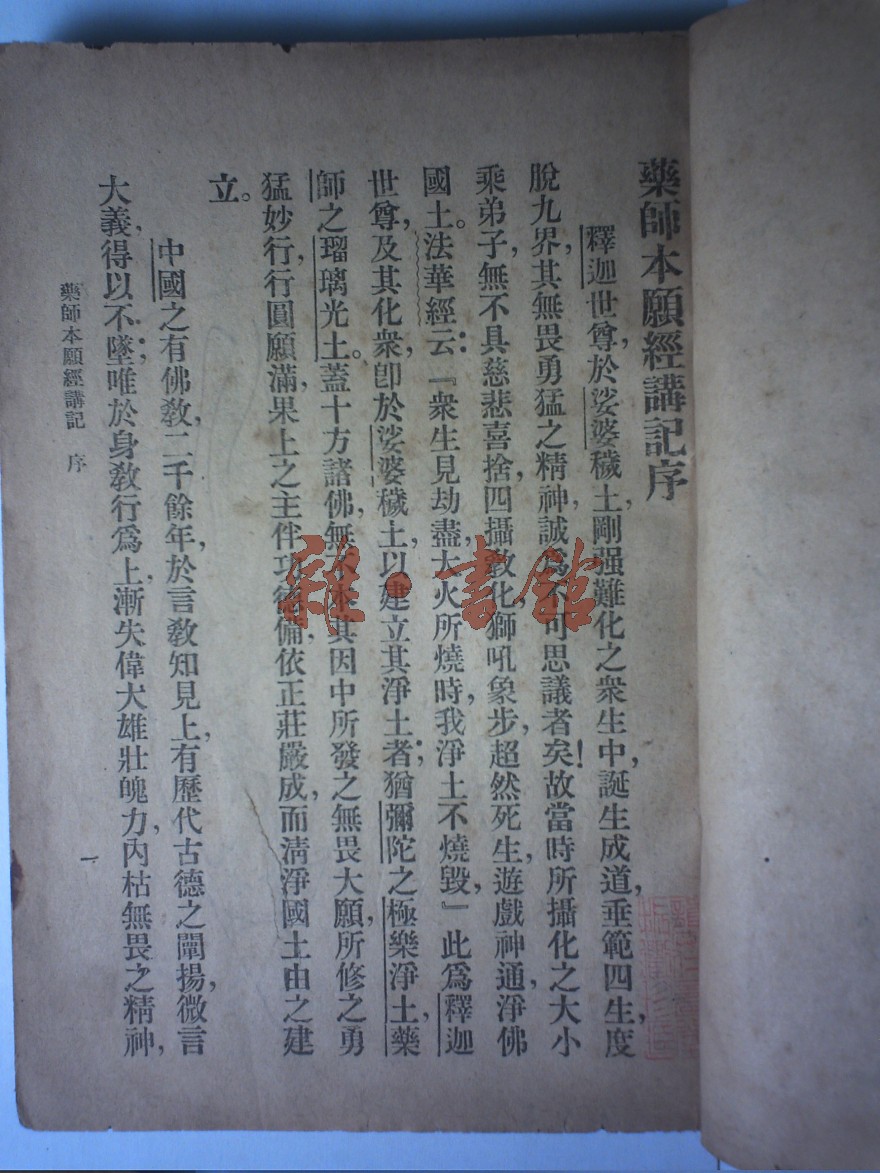 藥師本願經講記序
釋迦世尊，於娑婆穢土，剛强難化之衆生中，誕生成道，垂範四生，度
脫九界，其無畏勇猛之精神，誠爲不可思議者矣！故當時所攝化之大小
乘弟子，無不具慈悲喜捨，四攝敎化，獅吼象步，超然死生，遊戲神通，淨佛
國土。法華經云：『衆生見劫盡，大火所燒時，我淨土不燒毀，』此爲釋迦
世尊，及其化衆，卽於娑婆穢土，以建立其淨土者；猶彌陀之極樂淨土，藥
師之瑠璃光土。蓋十方諸佛，無不本其因中所發之無畏大願，所修之勇
猛妙行，行圓願滿，果上之主伴功德備，依正莊嚴成，而淸淨國土由之建
立。
中國之有佛敎，二千餘年，於言敎知見上，有歷代古德之闡揚，微言
大義，得以不墜；唯於身敎行爲上，漸失偉大雄壯魄力，內枯無畏之精神，
藥師本願經講記　序
一
雜·書館